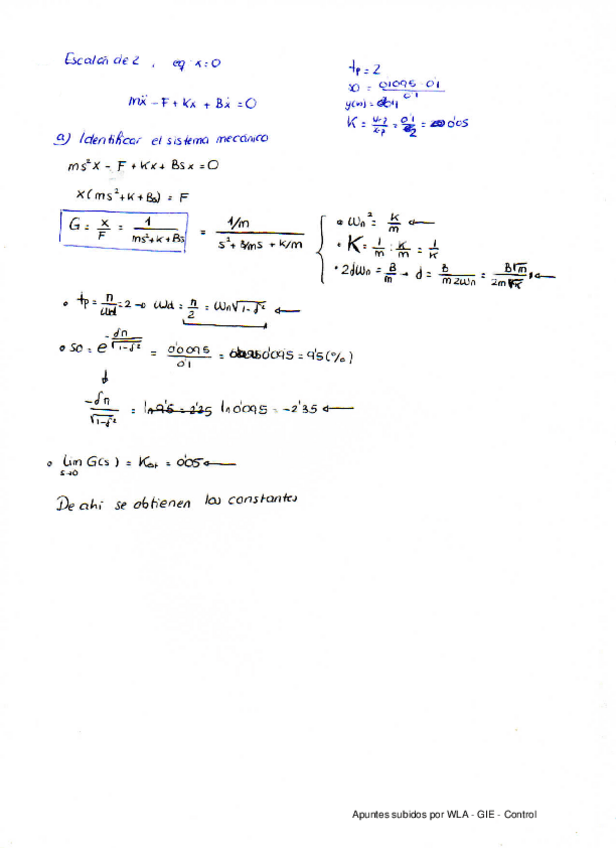 Escalón de 2 , eq x=0
mẍ - F + Kx + Bẋ = 0
tp = 2
SO = (0'1095 - 0'1) / 0'1
y(∞) = 0'1
K = 0'1/2 = 0'05
a) Identificar el sistema mecánico
ms²x - F + Kx + Bsx = 0
x(ms²+K+Bs) = F
G = x/F = 1/(ms²+K+Bs) = (1/m)/(s² + B/m s + K/m)
• ωn² = K/m ←
• K = 1/m : K/m = 1/K
• 2δωn = B/m → δ = B/(m2ωn) = B√m/(2m√K) ←
• tp = π/ωd = 2 → ωd = π/2 = ωn√(1-δ²) ←
• SO = e^(-δπ/√(1-δ²)) = 0'0095/0'1 = 0'095 = 9'5(%)
-δπ/√(1-δ²) = ln 9'5 = 2'35 ln 0'095 = -2'35 ←
• lim s→0 G(s) = Kest = 0'05 ←
De ahi se obtienen las constantes
Apuntes subidos por WLA - GIE - Control